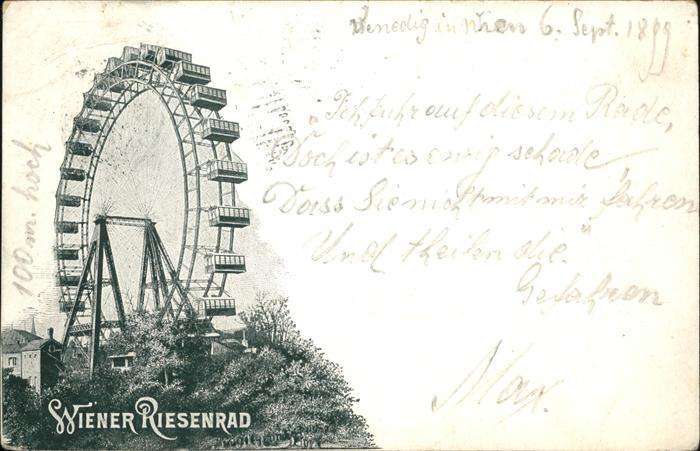 Venedig in Wien 6. Sept. 1899
100 m. hoch
"Ich fuhr auf diesem Rade,
Doch ist es ewig schade
Dass Sie nicht mit mir fahren
Und theilen die"
Gefahren
Max.
WIENER RIESENRAD